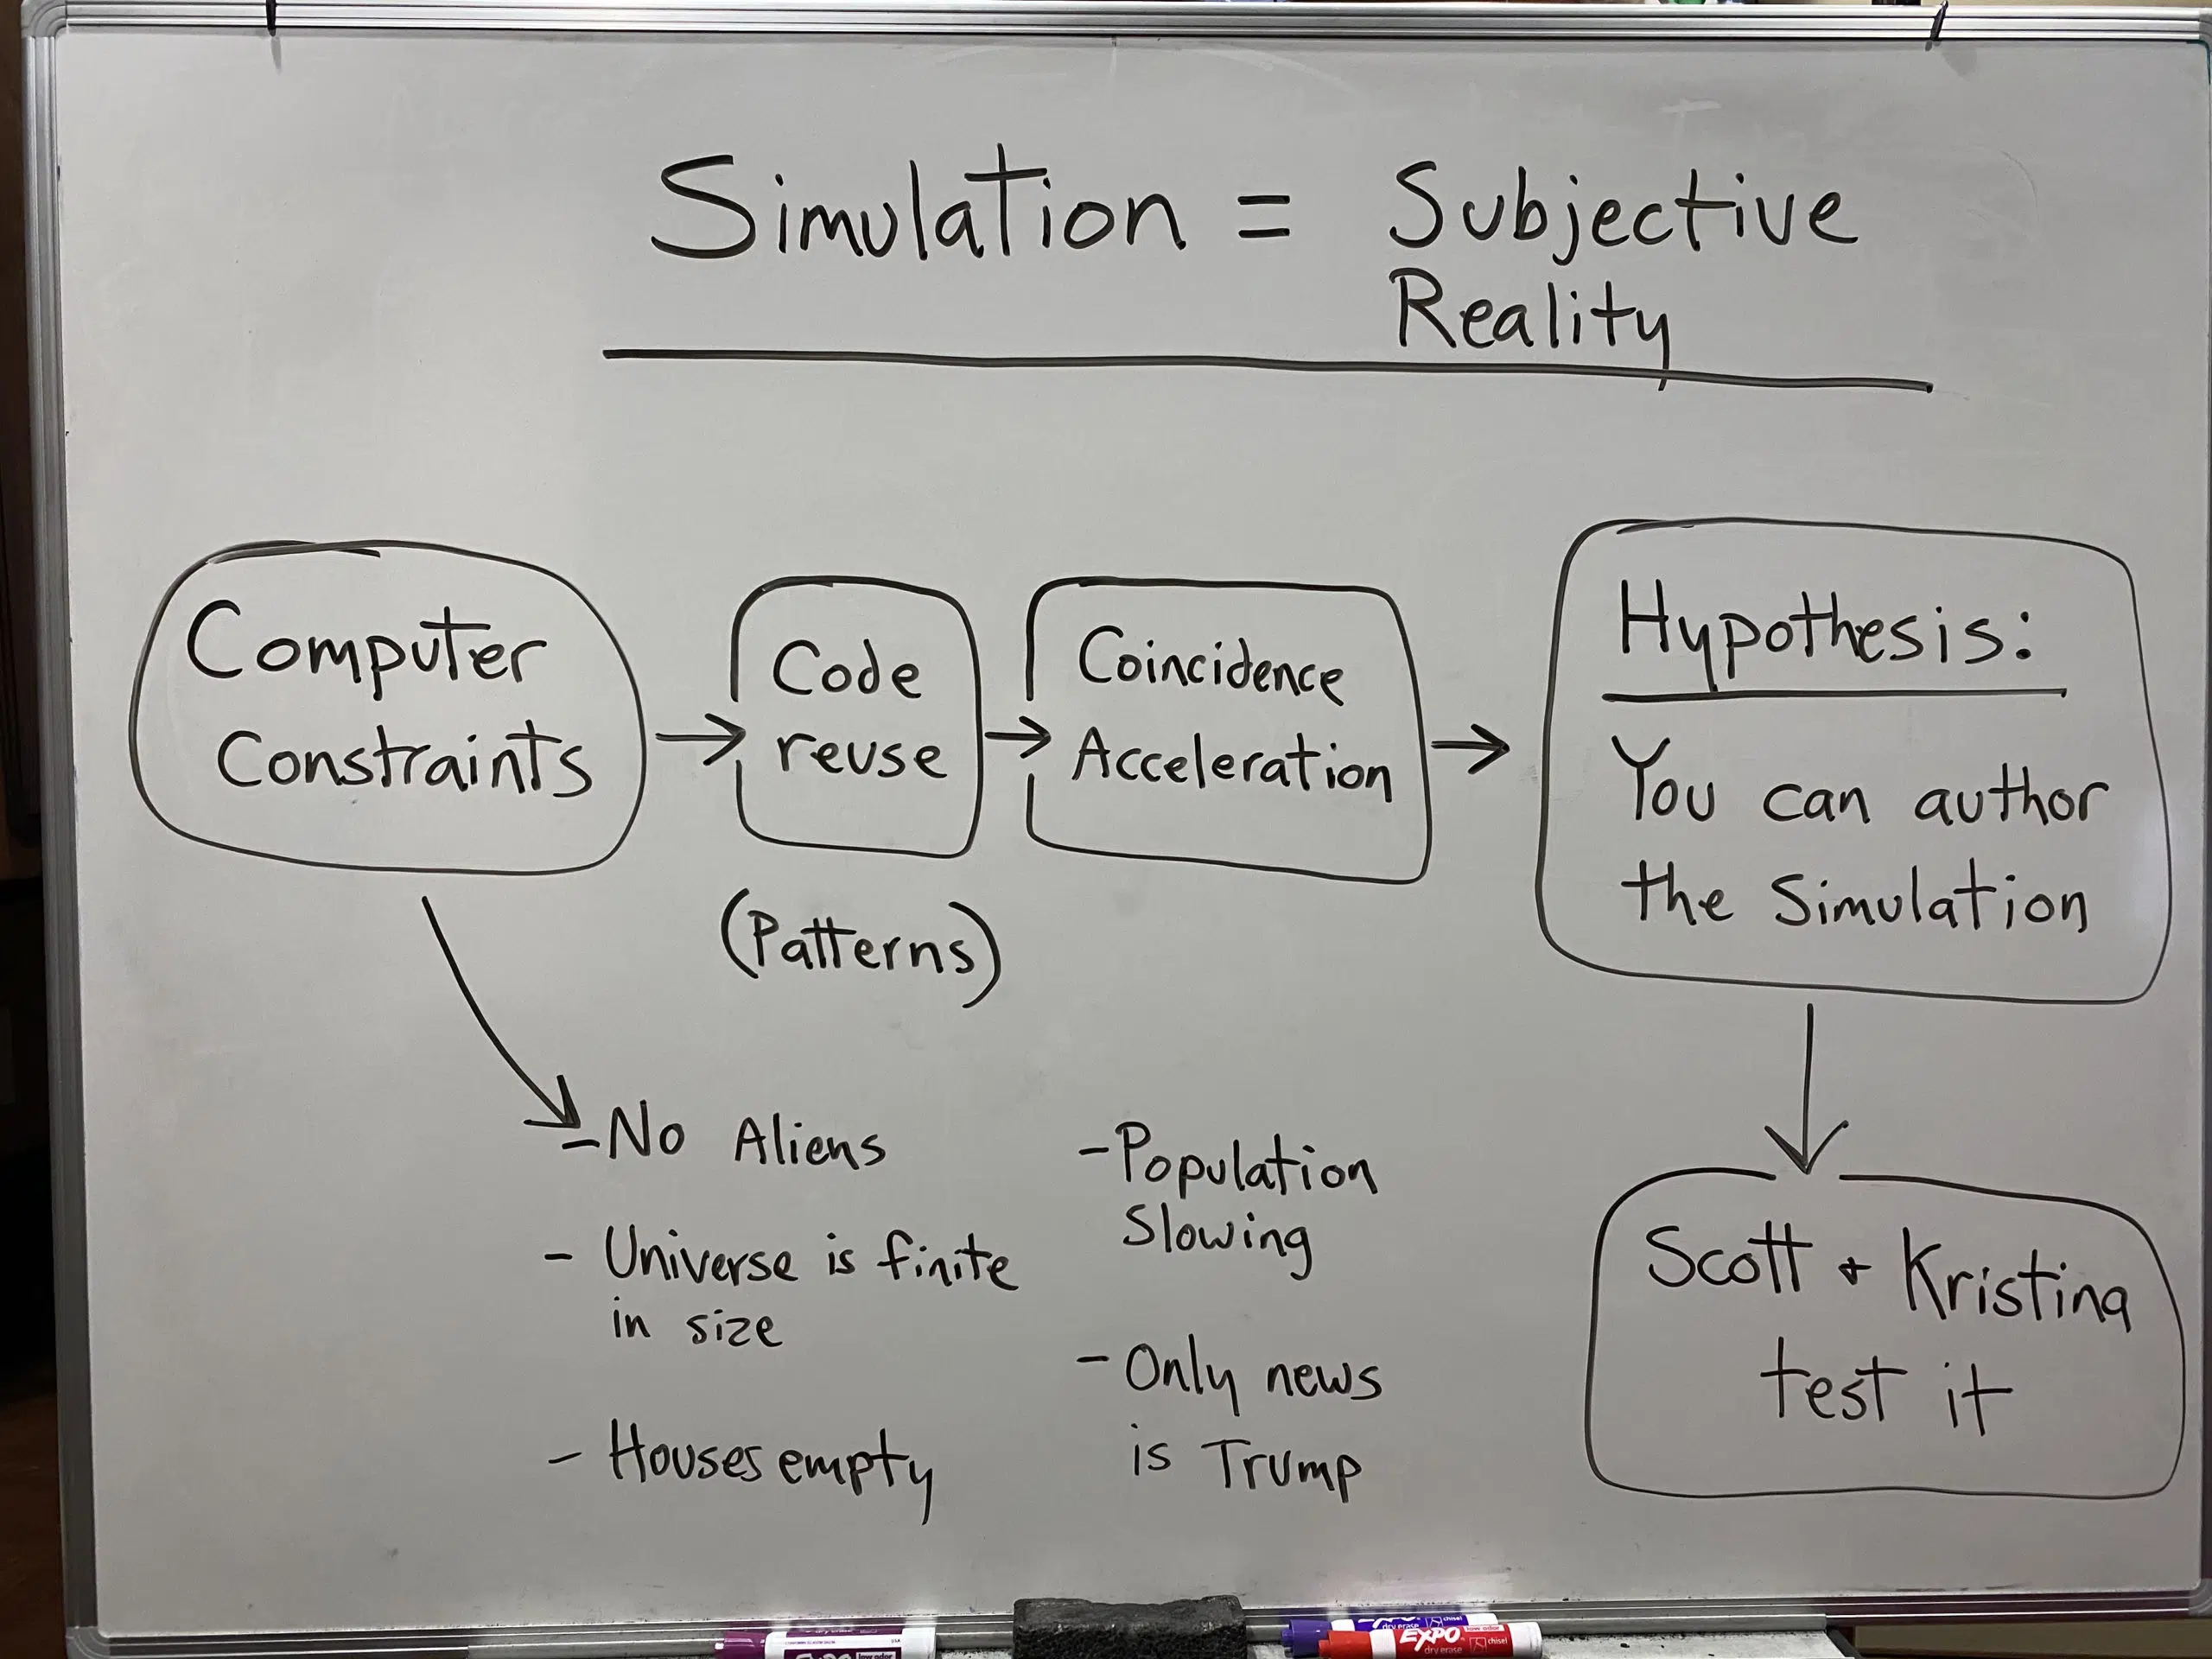 Simulation = Subjective
Reality
Computer
Constraints
Code
reuse
(Patterns)
Coincidence
Acceleration
Hypothesis:
You can author
the Simulation
- No Aliens
- Universe is finite
in size
- Houses empty
- Population
Slowing
- Only news
is Trump
Scott + Kristina
test it
dry erase
EXPO
low odor
chisel
dry erase
chisel
dry erase
USA
low odor